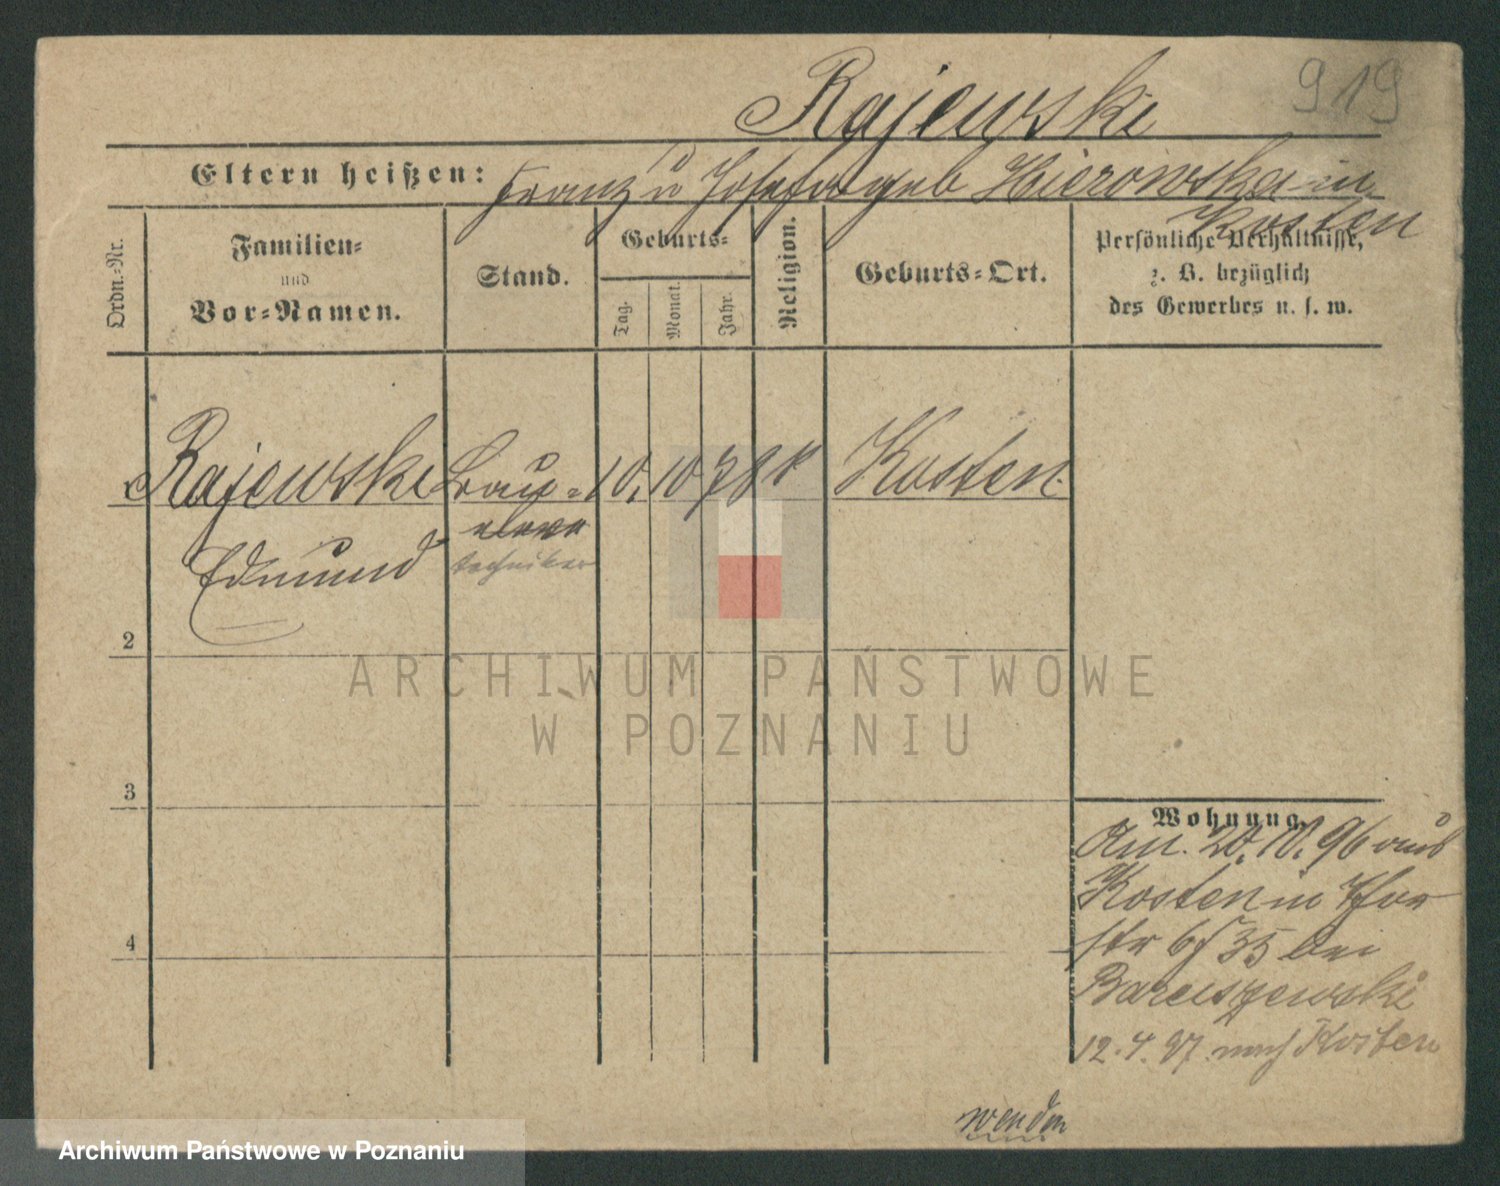 919
Rajewski
Eltern heißen: Franz u Josefa geb Hierowska in
Kosten
Ordn.-Nr.
Familien-
und
Vor-Namen.
Stand.
Geburts-
Tag.
Monat.
Jahr.
Religion.
Geburts-Ort.
Persönliche Verhältnisse,
z. B. bezüglich
des Gewerbes u. s. w.
Rajewski Bau- 10. 10 78 k Kosten.
eleve
Edmund techniker
2
3
4
ARCHIWUM PAŃSTWOWE
W POZNANIU
Wohnung.
Am. 20. 10. 96 aus
Kosten in
str 6 35 bei
Barciszewski
12. 4. 97. nach Kosten
wenden
Archiwum Państwowe w Poznaniu